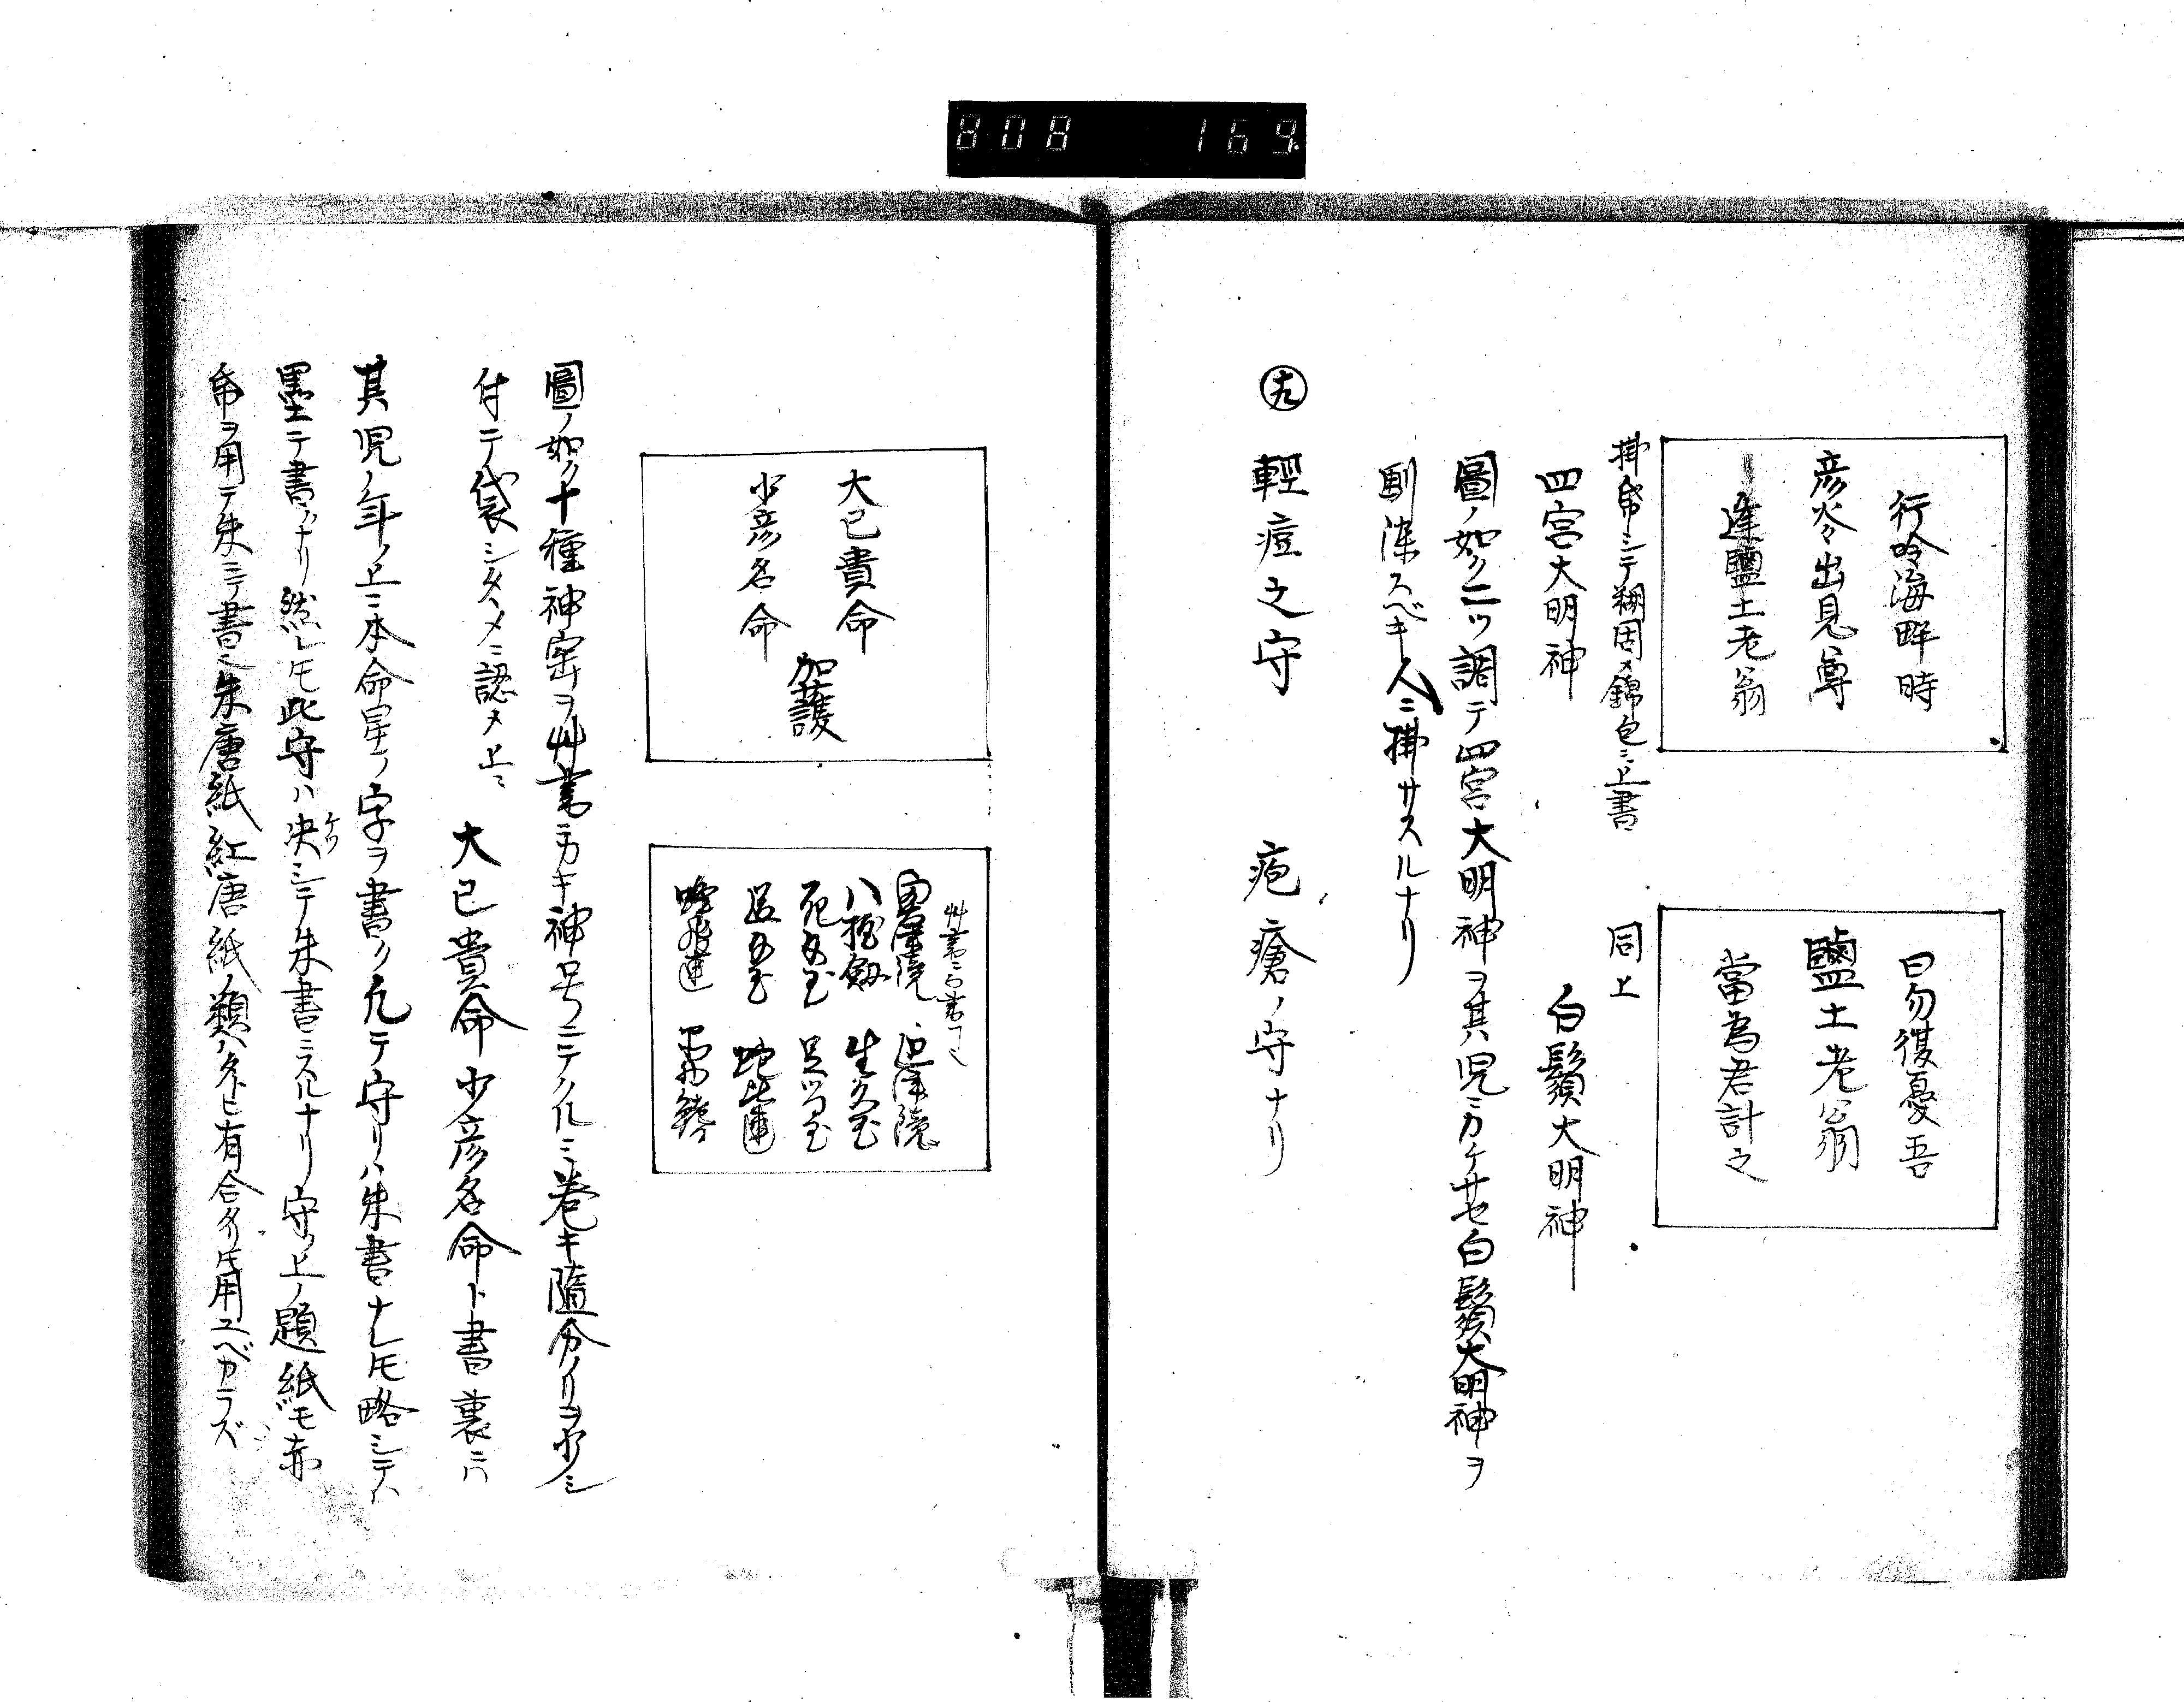 808 169
行吟海畔時
彦火々出見尊
逢鹽土老翁
曰勿復憂吾
鹽土老翁
當為君計之
掛帋ニシテ糊固メ錦包ミ上書
同上
四宮大明神
白鬚大明神
圖ノ如ク二ツ調テ四宮大明神ヲ其児ニカケサセ白鬚大明神ヲ
馴染スベキ人ニ掛サスルナリ
十九 輕痘之守 疱瘡ノ守ナリ
大已貴命
少彦名命
加護
八握劔 生玉
圖ノ如ク十種神宝ヲ艸書ニカキ神号ニテクルミ巻キ隨分ノリヲ少シ
付テ袋シタヽメニ認メ上ニ 大已貴命少彦名命ト書裏ニハ
其児ノ年ノ上ニ本命星ノ字ヲ書ク凡テ守リハ朱書ナレ𪜈略シテハ
墨テ書クナリ然レ𪜈此守ハ决シテ朱書ニスルナリ守ノ上ノ題紙モ赤
ケツ
帋ヲ用テ朱ニテ書ベシ朱唐紙紅唐紙ノ類ハタトヒ有合タリ𪜈用ユベカラズ